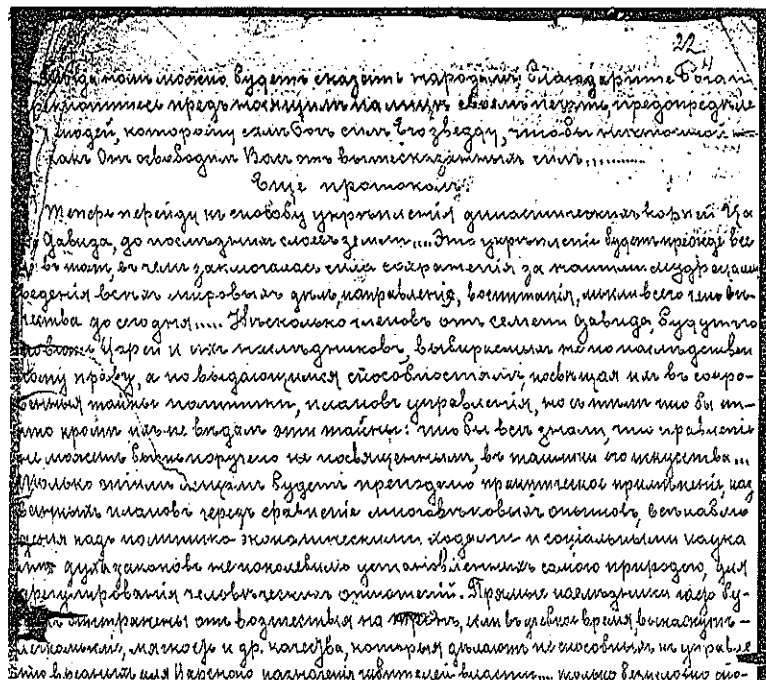 22
намъ можно будетъ сказать народамъ: благодарите Бога и
предъ носящимъ на лицѣ своемъ печать предопредѣле
людей, которому самъ Богъ велъ Его звезду, чтобы никто иной
какъ Онъ освободилъ Васъ отъ вышесказанныхъ силъ..........
Еще протоколъ.
Теперь перейду къ способу укрѣпленія династическихъ корней Ца
Давида, до послѣднихъ слоевъ земли.... Это укрѣпленіе будетъ прежде все
въ томъ, въ чемъ заключалась сила сохраненія за нашими мудрецами
веденія всѣхъ міровыхъ дѣлъ, направленія, воспитанія, мысли всего чело
чества до сегодня..... Нѣсколько членовъ отъ семени Давида, будутъ го
товить Царей и ихъ наслѣдниковъ, выбираемыхъ не по наслѣдствен
ному праву, а по выдающимся способностямъ, посвящая ихъ въ сокро-
венныя тайны политики, плановъ управленія, но съ тѣмъ что бы ни-
кто кромѣ ихъ не вѣдалъ эти тайны: что бы всѣ знали, что правленіе
не можетъ быть поручено не посвященнымъ, въ тайники его искусства...
только этимъ лицамъ будетъ преподано практическое примѣненіе, наз
ванныхъ плановъ черезъ сравненіе многовѣковыхъ опытовъ, всѣ наблю
денія надъ политико-экономическими ходами и соціальными наука
духъ законовъ непоколебимо установленныхъ самою природою, для
регулированія человѣческихъ отношеній. Прямые наслѣдники часто бу-
отстранены отъ возшествія на тронъ, если въ учебное время, выкажутъ-
легкомысліе, мягкость и др. качества, которыя дѣлаютъ неспособнымъ къ управле
для Царскаго назначенія власти.... только безусловно спо-